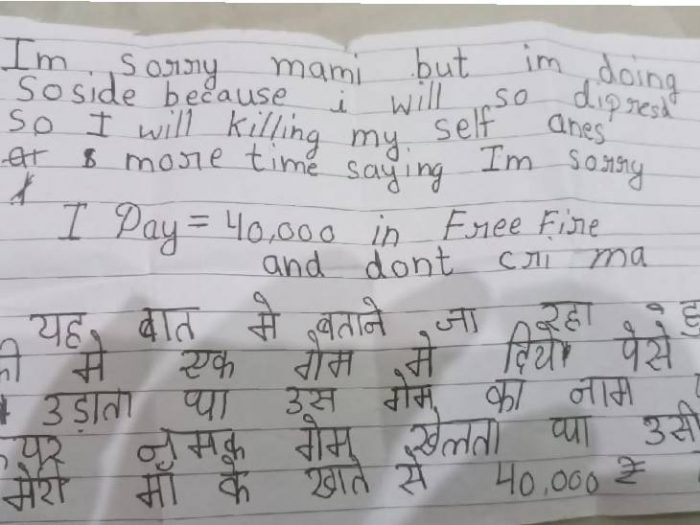 Im sorry mami but im doing
Soside because i will so dipresd
So I will killing my self anes
more time saying Im sorry
I Pay = 40,000 in Free Fire
and dont cri ma
यह बात मे बताने जा रहा हु
की मे एक गेम मे दिये पेसे
उड़ाता था उस गेम का नाम
नमक गेम खेलता था उसी
मेरी माँ के खाते से 40,000 ₹